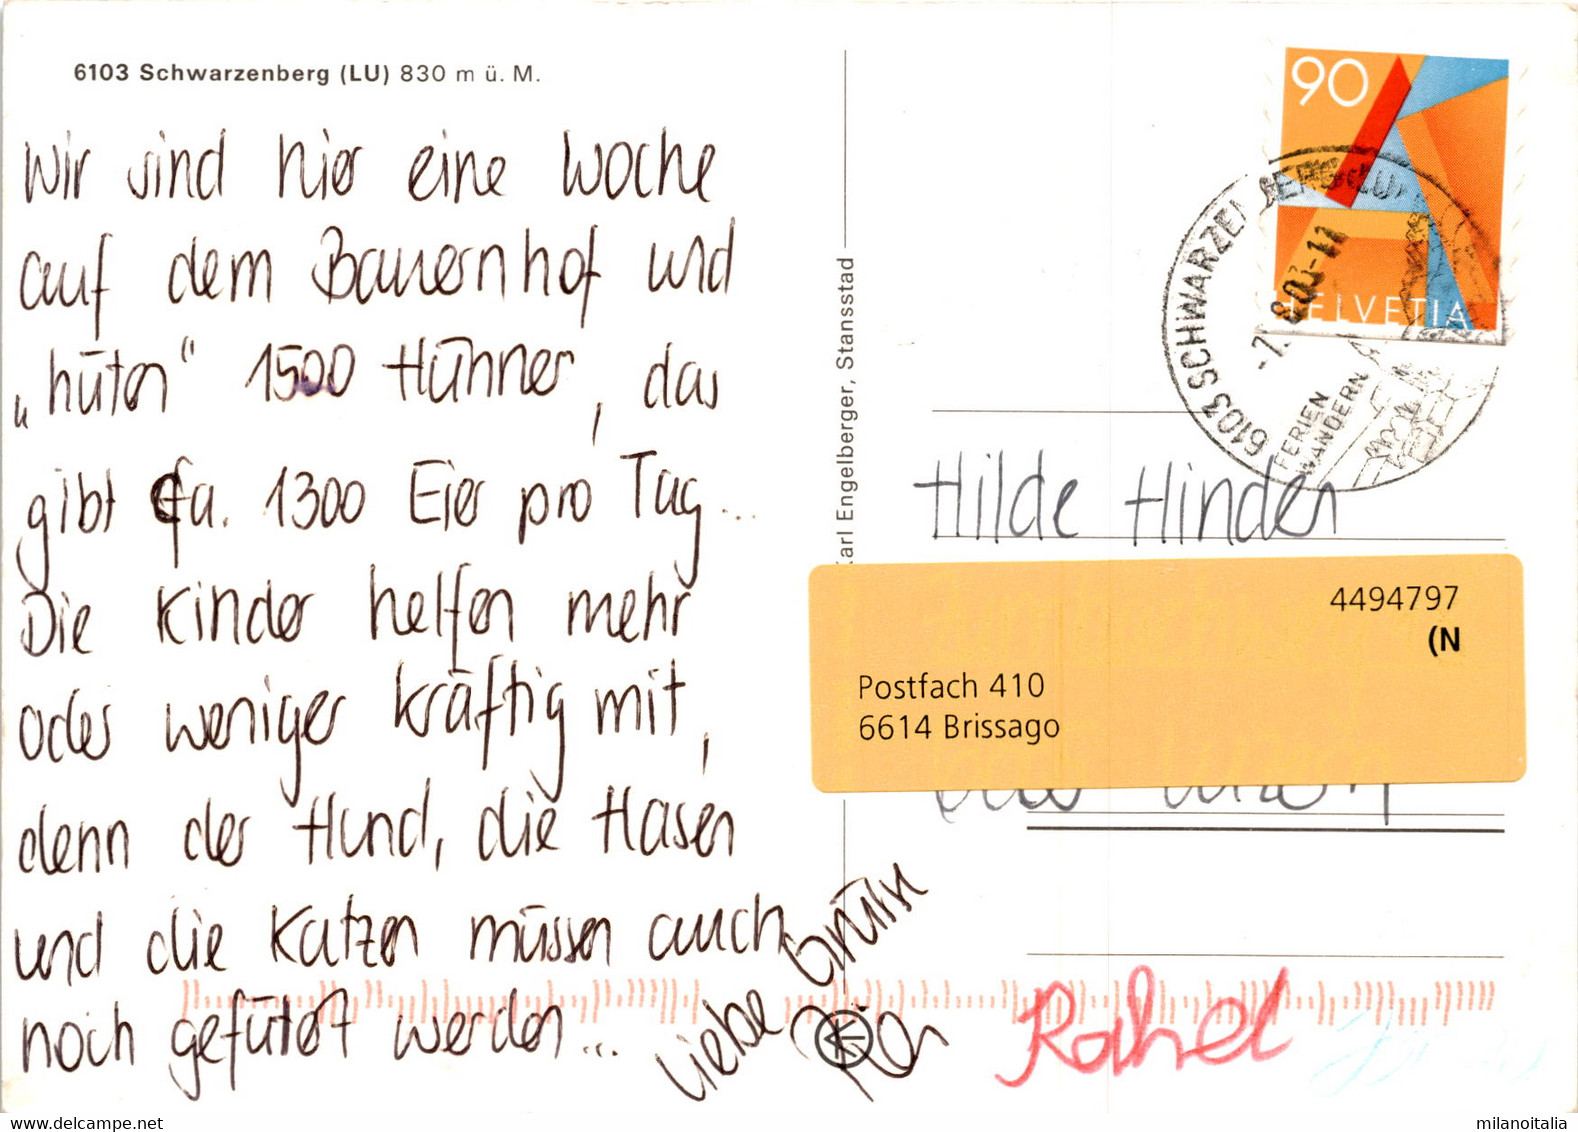 6103 Schwarzenberg (LU) 830 m ü. M.
Wir sind hier eine Woche
auf dem Bauernhof und
„hüten" 1500 Hühner, das
gibt ca. 1300 Eier pro Tag...
Die Kinder helfen mehr
oder weniger kräftig mit,
denn der Hund, die Hasen
und die Katzen müssen auch
noch gefüttert werden...
Liebe Grüsse
Rahel
Karl Engelberger, Stansstad
90
HELVETIA
6103 SCHWARZENBERG (LU)
-7.8.03-11
FERIEN
WANDERN
Hilde Hinden
4494797
(N
Postfach 410
6614 Brissago
Luzern
milanoitalia